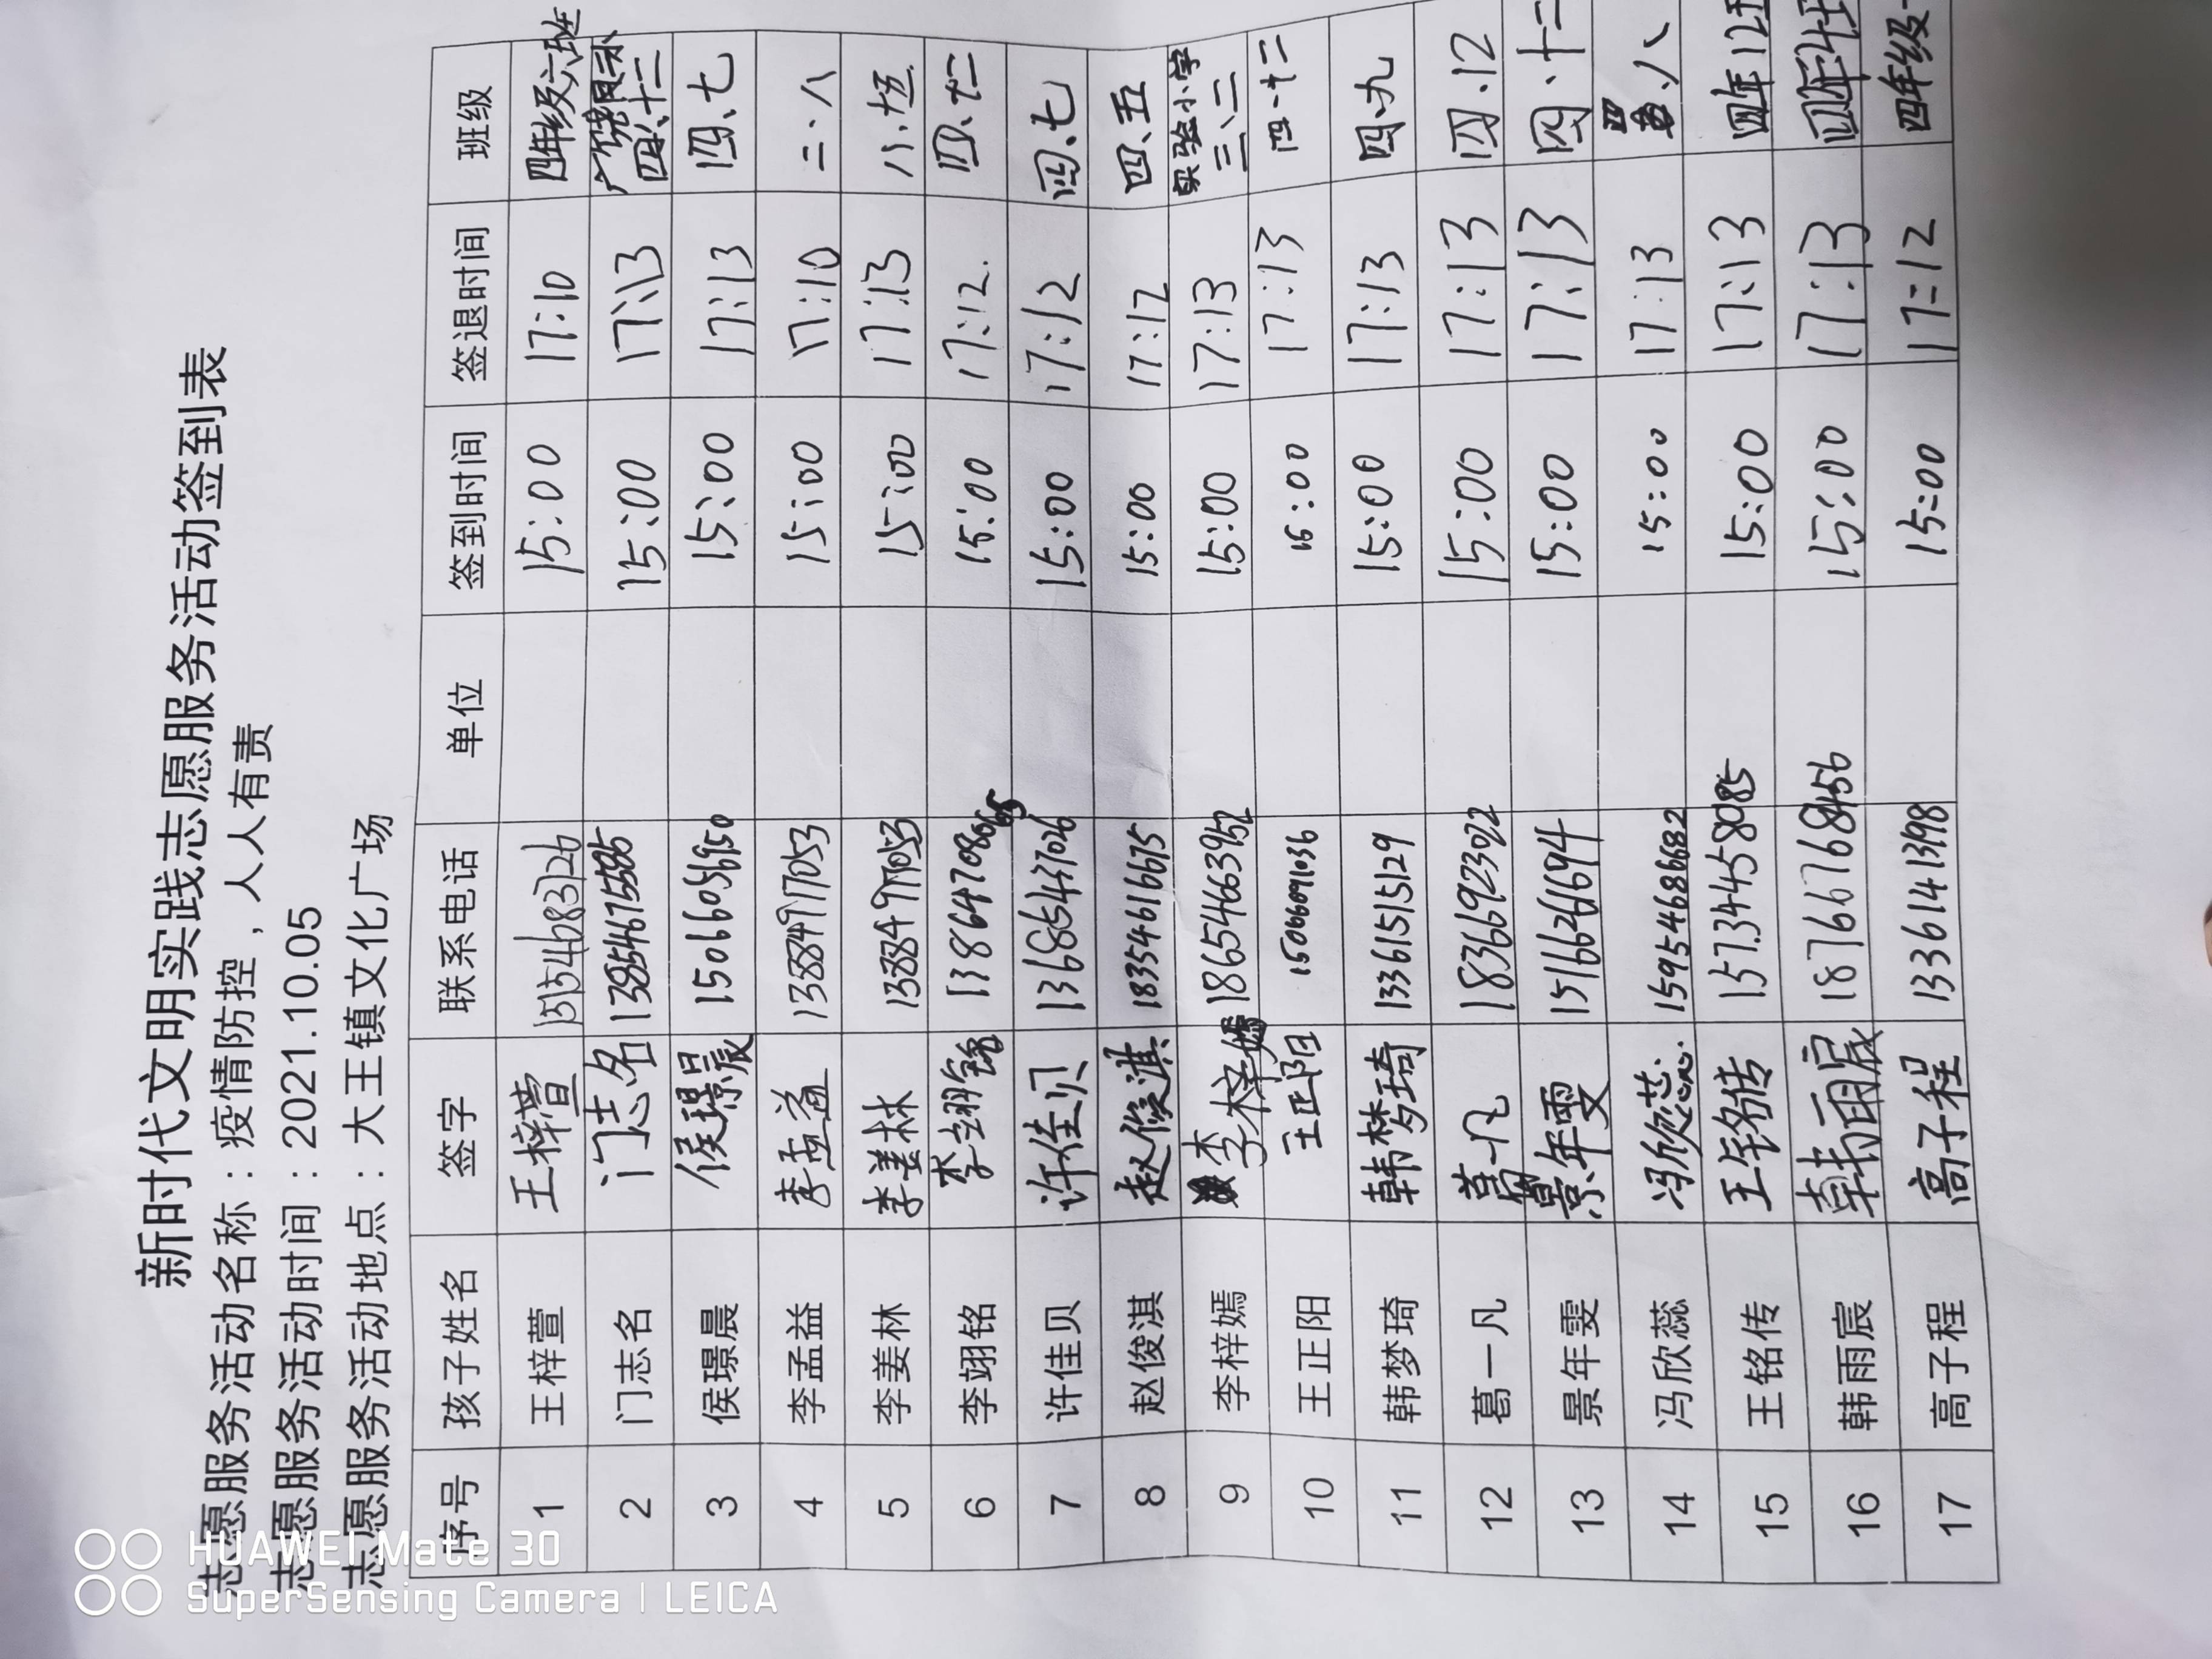 新时代文明实践志愿服务活动签到表
志愿服务活动名称：疫情防控，人人有责
志愿服务活动时间：2021.10.05
志愿服务活动地点：大王镇文化广场
序号 孩子姓名 签字 联系电话 单位 签到时间 签退时间 班级
1 王梓萱 王梓萱 15:00 17:10 四年级六班
2 门志名 门志名 15:00 17:13 四、十二
3 侯璟晨 侯璟晨 15:00 17:13 四、七
4 李孟益 李孟益 13884917053 15:00 17:10 二、八
5 李姜林 李姜林 13884917053 15:00 17:13 八、五
6 李翊铭 李翊铭 15:00 17:12 四、十二
7 许佳贝 许佳贝 13685437026 15:00 17:12 四、七
8 赵俊淇 赵俊淇 18354616675 15:00 17:12 四、五
9 李梓嫣 李梓嫣 18654663952 15:00 17:13 实验小学 三、二
10 王正阳 王正阳 15066091036 15:00 17:13 四、十二
11 韩梦琦 韩梦琦 13361515129 15:00 17:13 四、九
12 葛一凡 葛一凡 18366923022 15:00 17:13 四、12
13 景年雯 景年雯 15166261694 15:00 17:13 四、十二
14 冯欣蕊 冯欣蕊 15954686682 15:00 17:13 四、八
15 王铭传 王铭传 15734458085 15:00 17:13 四年12班
16 韩雨宸 韩雨宸 18766768456 15:00 17:13
17 高子程 高子程 1336141398 15:00 17:12 四年级
HUAWEI Mate 30
SuperSensing Camera | LEICA